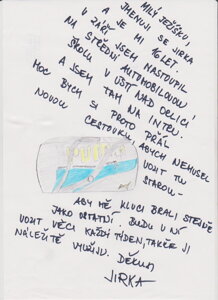 MILÝ JEŽÍŠKU,
JMENUJI SE JIRKA
A JE MI 16 LET.
V ZÁŘÍ JSEM NASTOUPIL
NA STŘEDNÍ AUTOMOBILOVOU
ŠKOLU V ÚSTÍ NAD ORLICÍ
A JSEM TAM NA INTRU.
MOC BYCH SI PROTO PŘÁL
NOVOU CESTOVKU, ABYCH NEMUSEL
VOZIT TU
STAROU –
ABY MĚ KLUCI BRALI STEJNĚ
JAKO OSTATNÍ. BUDU V NÍ
VOZIT VĚCI KAŽDÝ TÝDEN, TAKŽE JI
NÁLEŽITĚ VYUŽIJU. DĚKUJI
JIRKA